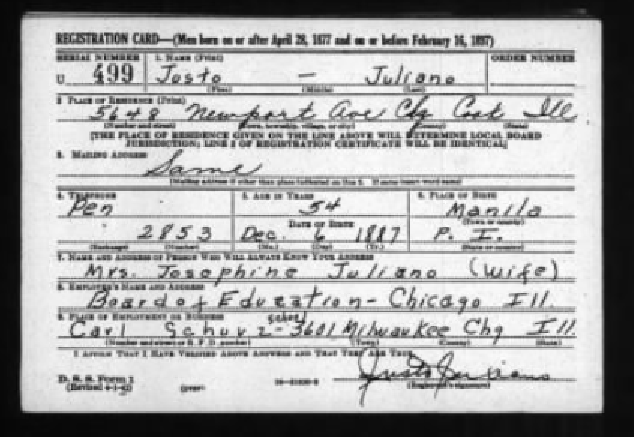 REGISTRATION CARD—(Men born on or after April 28, 1877 and on or before February 16, 1897)
SERIAL NUMBER 1. NAME (Print) ORDER NUMBER
U 499 Justo — Juliano
(First) (Middle) (Last)
2. PLACE OF RESIDENCE (Print)
5648 Newport Ave Chg Cook Ill
(Number and street) (Town, township, village, or city) (County) (State)
[THE PLACE OF RESIDENCE GIVEN ON THE LINE ABOVE WILL DETERMINE LOCAL BOARD
JURISDICTION; LINE 2 OF REGISTRATION CERTIFICATE WILL BE IDENTICAL]
3. MAILING ADDRESS
Same
[Mailing address if other than place indicated on line 2. If same insert word same]
4. TELEPHONE 5. AGE IN YEARS 6. PLACE OF BIRTH
Pen 54 Manila
DATE OF BIRTH (Town or county)
2853 Dec. 6 1887 P. I.
(Exchange) (Number) (Mo.) (Day) (Yr.) (State or country)
7. NAME AND ADDRESS OF PERSON WHO WILL ALWAYS KNOW YOUR ADDRESS
Mrs. Josephine Juliano (Wife)
8. EMPLOYER'S NAME AND ADDRESS
Board of Education - Chicago Ill.
9. PLACE OF EMPLOYMENT OR BUSINESS
Carl Schurz School - 3601 Milwaukee Chg Ill.
(Number and street or R. F. D. number) (Town) (County) (State)
I AFFIRM THAT I HAVE VERIFIED ABOVE ANSWERS AND THAT THEY ARE TRUE.
D. S. S. Form 1
(Revised 4-1-42) (over) Justo Juliano
(Registrant's signature)